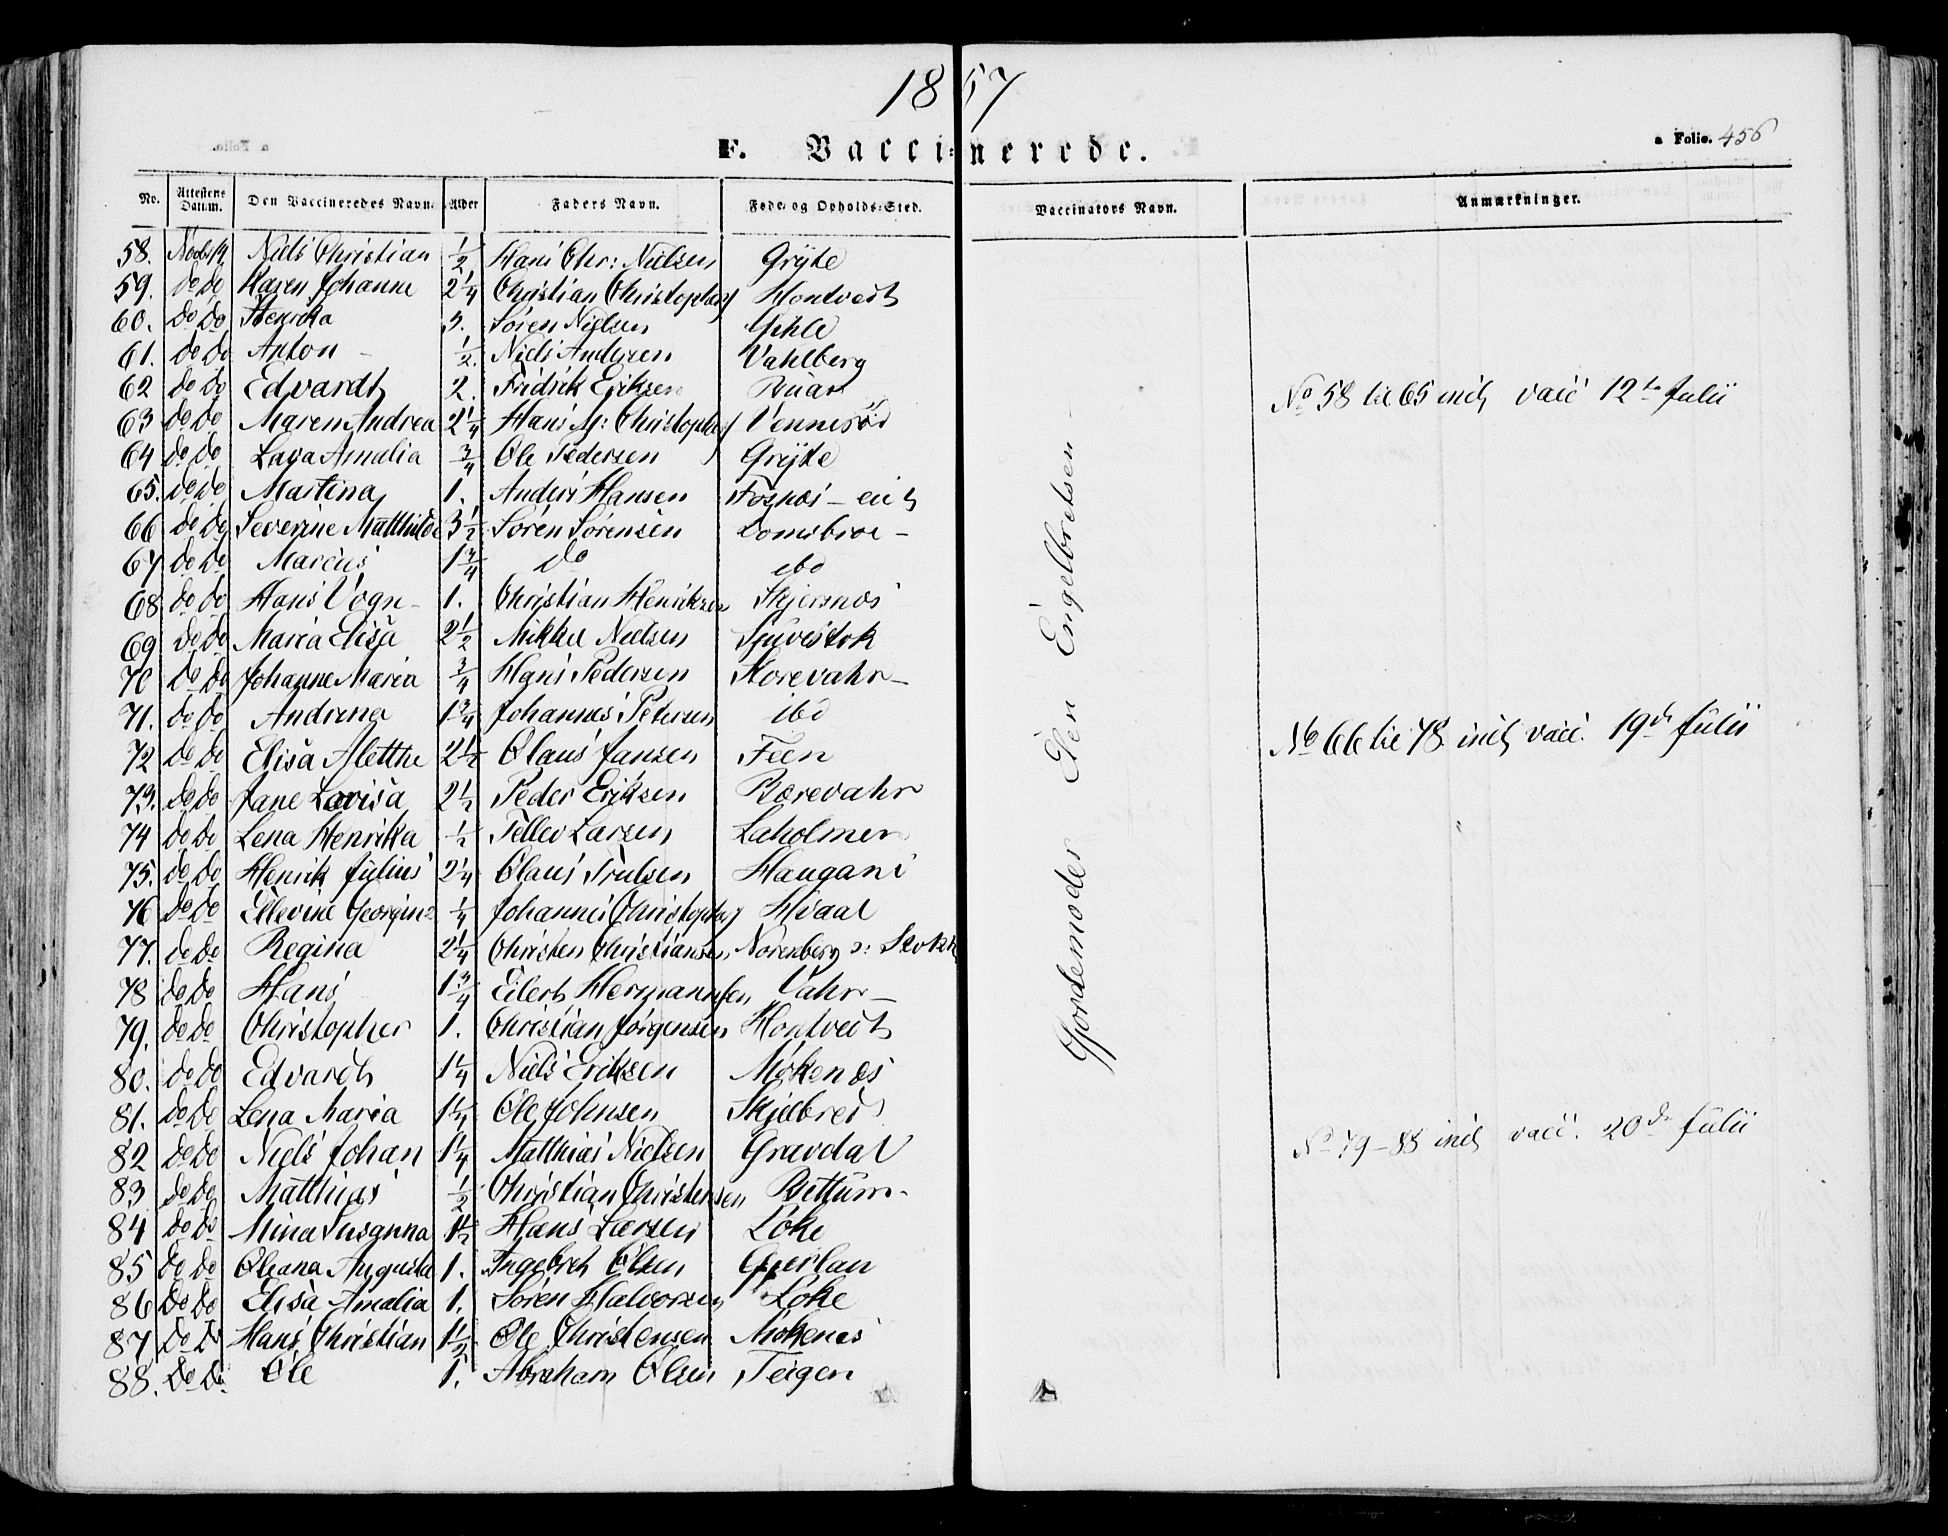 1857
F. Vaccinerede.
a Folio. 456
No. Attestens Datum. Den Vaccineredes Navn. Alder Faders Navn. Føde- og Opholds-Sted. Vaccinators Navn. Anmærkninger.
58. Niels Christian 1/2 Hans Chr: Nielsen Grýte
59. do do Karen Johanne 2 1/4 Christian Christophers Hontveit
60. do do Henrika 3. Sören Nielsen
61. do do Anton 1/2. Niels Andersen Vahlberg
62 do do Edvardt 2. Fridrik Eriksen Buar
63 do do Maren Andrea 2 1/4 Hans M: Christophers Vennisød
64 do do Lava Amalia 3/4 Ole Pedersen Grýte
65. do do Martina 1. Anders Hansen Fosnæs - eit
66 do do Severine Matthilde 3 1/2 Soren Sörensen Lomsbroe -
67 do do Marcus 1 3/4 do ibd
68 do do Hans Vogn 1. Christian Henriksen Skjersnæs
69 do do Maria Elisa 2 1/2 Mikkel Nielsen
70 do do Johanne Maria 3/4 Hans Pedersen Korevahr -
71. do do Andrina 1 3/4 Johannes Petersen ibd
72 do do Elisa Aletthe 2 1/2 Claus Jansen Feen
73. do do Jane Lovisa 2 1/2 Peder Eriksen Borevahr
74 do do Lena Henrika 1/2 Tellev Larsen Laholmen
75. do do Henrik Julius 2 1/4 Claus Trulsen Haugane
76 do do Ellevine Georgine 1/4 Johannes Christophers Hvaal
77. do do Regina 2 1/4 Christen Christiansen Norenberg
78 do do Hans 1 3/4 Eilert Hermannsen Vahr -
79. do do Christopher 1. Christian Jörgensen Hontveit
80. do do Edvardt 1 1/4 Niels Eriksen Mökenæs
81. do do Lena Maria 1 1/4 Ole Johnsen Skjelbred
82 do do Niels Johan 1 1/4 Matthias Nielsen Gravdal
83 do do Matthias 1/2 Christian Christensen Bettum -
84 do do Mina Susanna 1 1/2 Hans Larsen Löke
85 do do Oleana Augusta 1. Ingebret Olsen
86 do do Elisa Amalia 1. Sören Halvorsen Löke
87 do do Hans Christian 1 1/2 Ole Christensen Mökenæs
88. do do Ole 1. Abraham Olsen Teigen
Gjordemoder Elen Engelbretsen
No 58 til 65 incl vacc 12te Julii
No 66 til 78 incl vacc. 19de Julii
No 79 - 88 incl vacc. 20de Julii